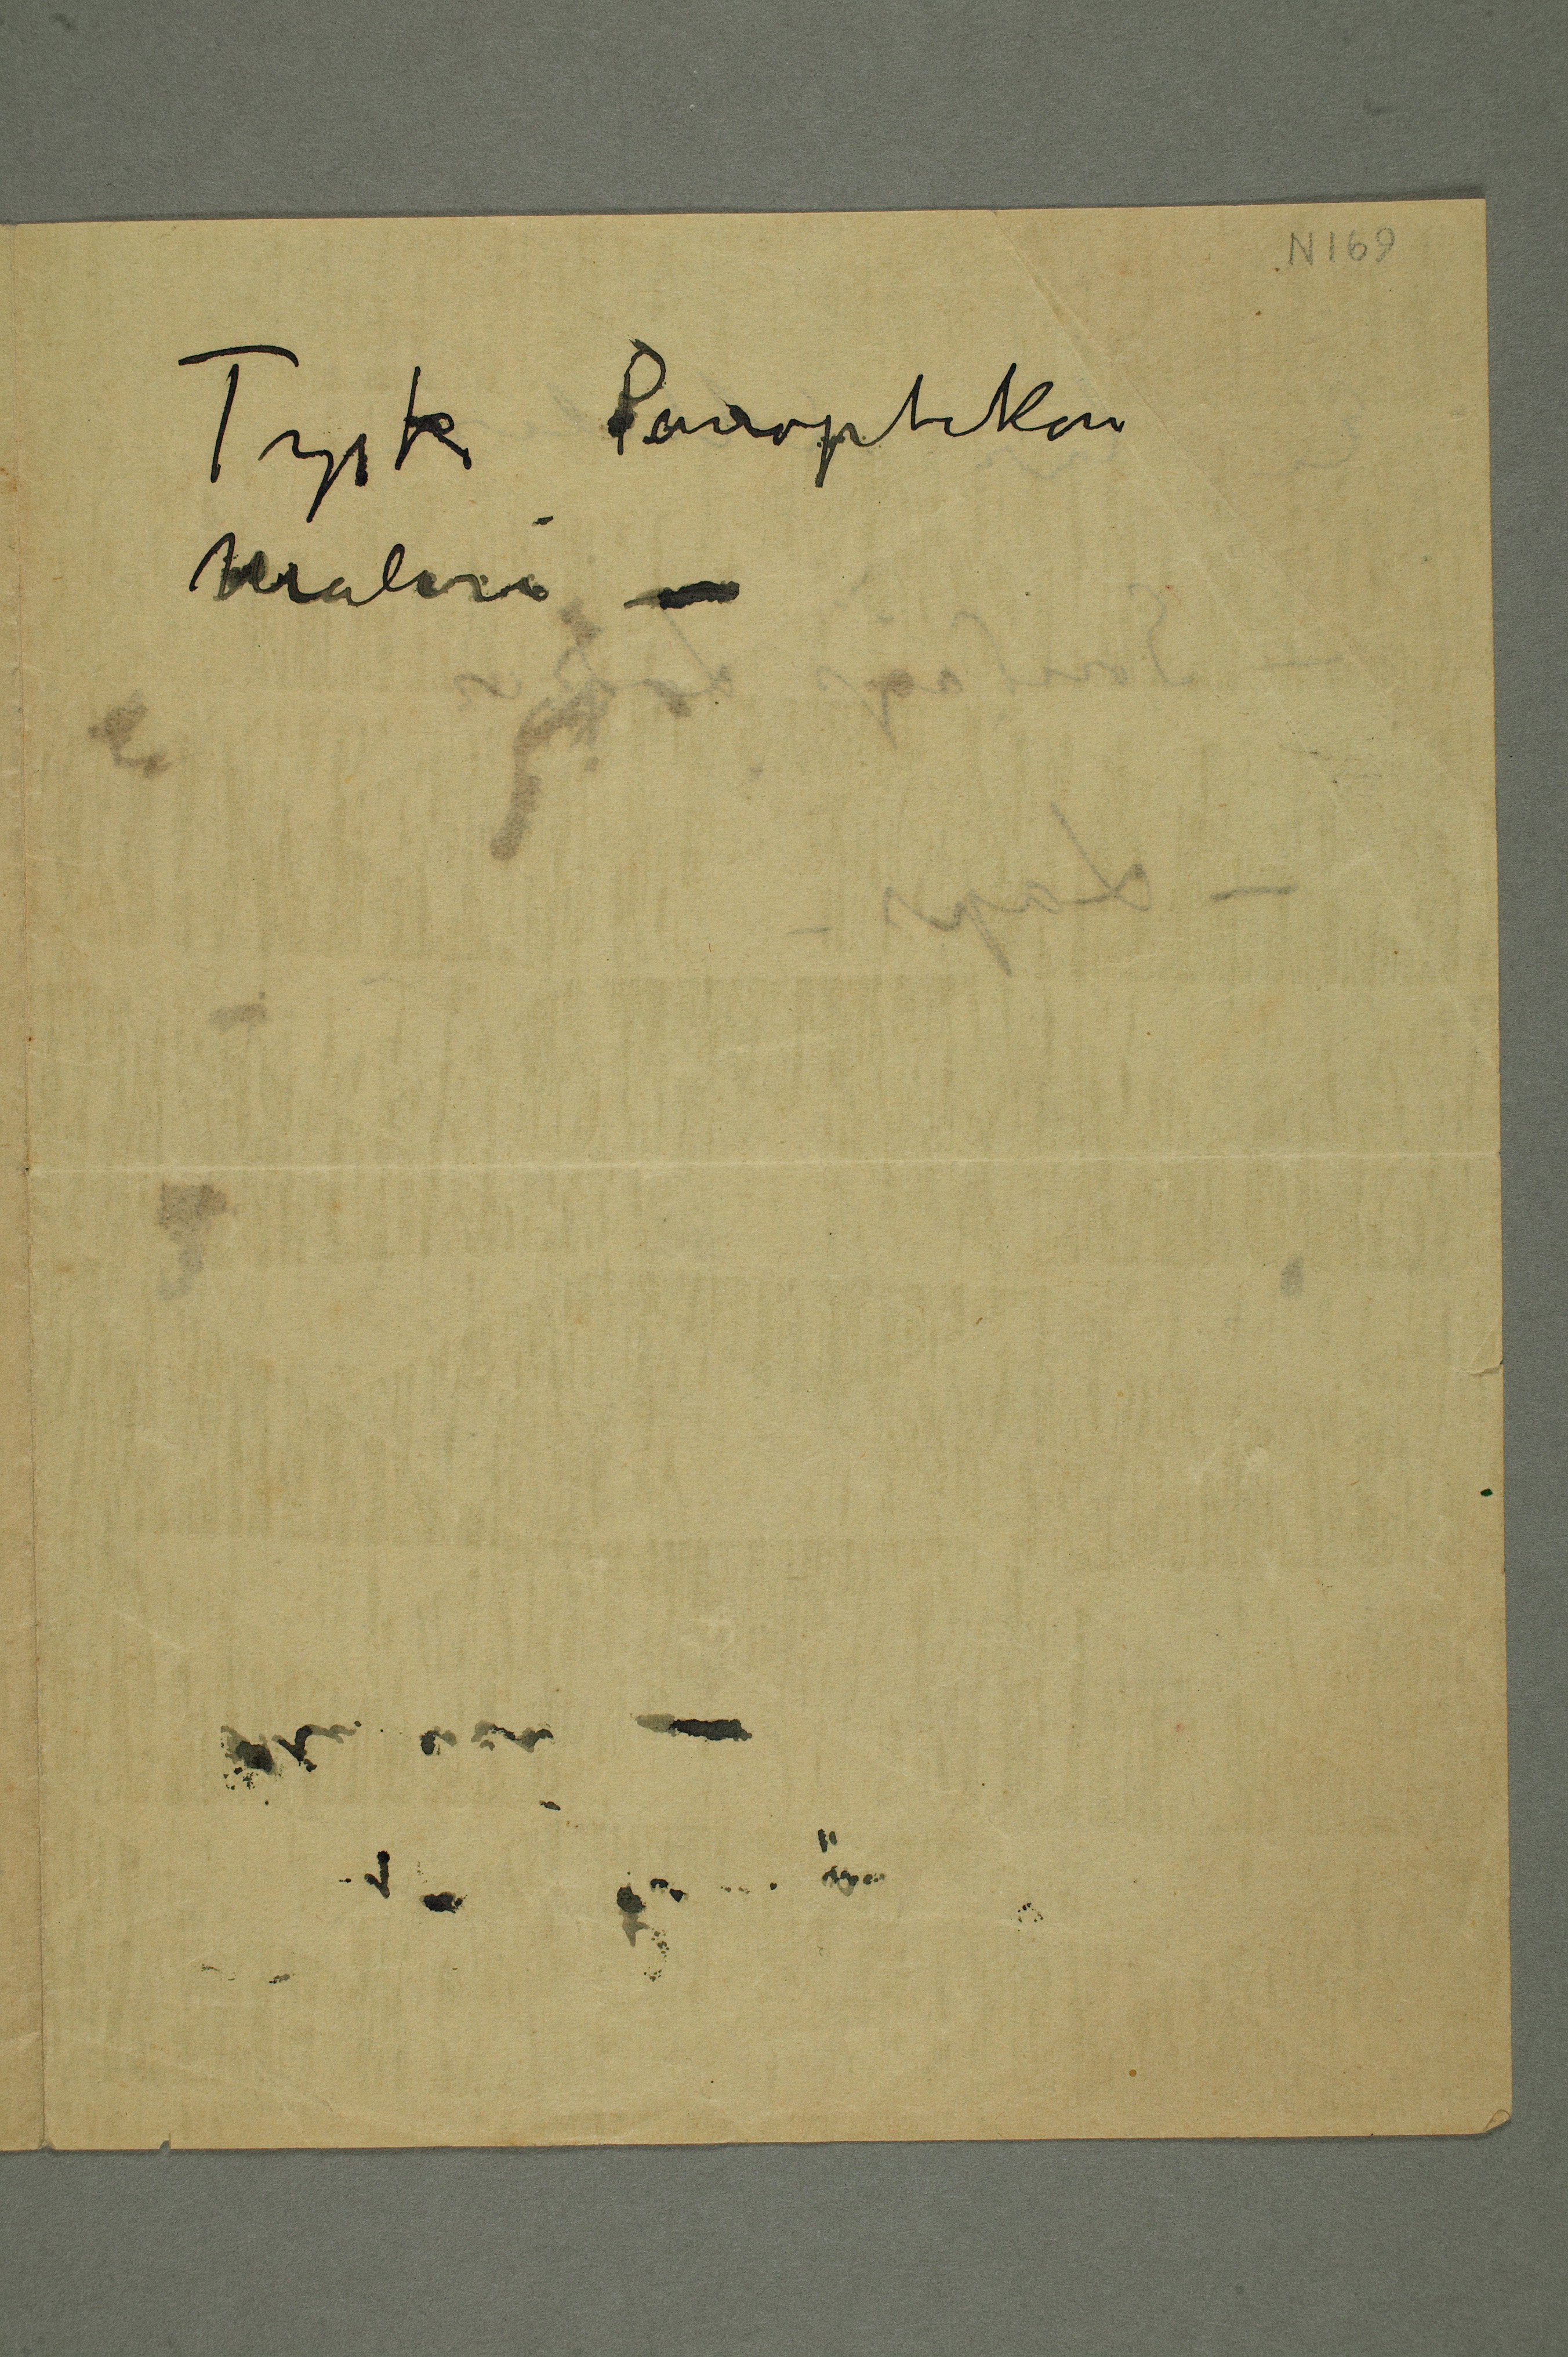 N169
Tysk Panoptikon
Maleri —